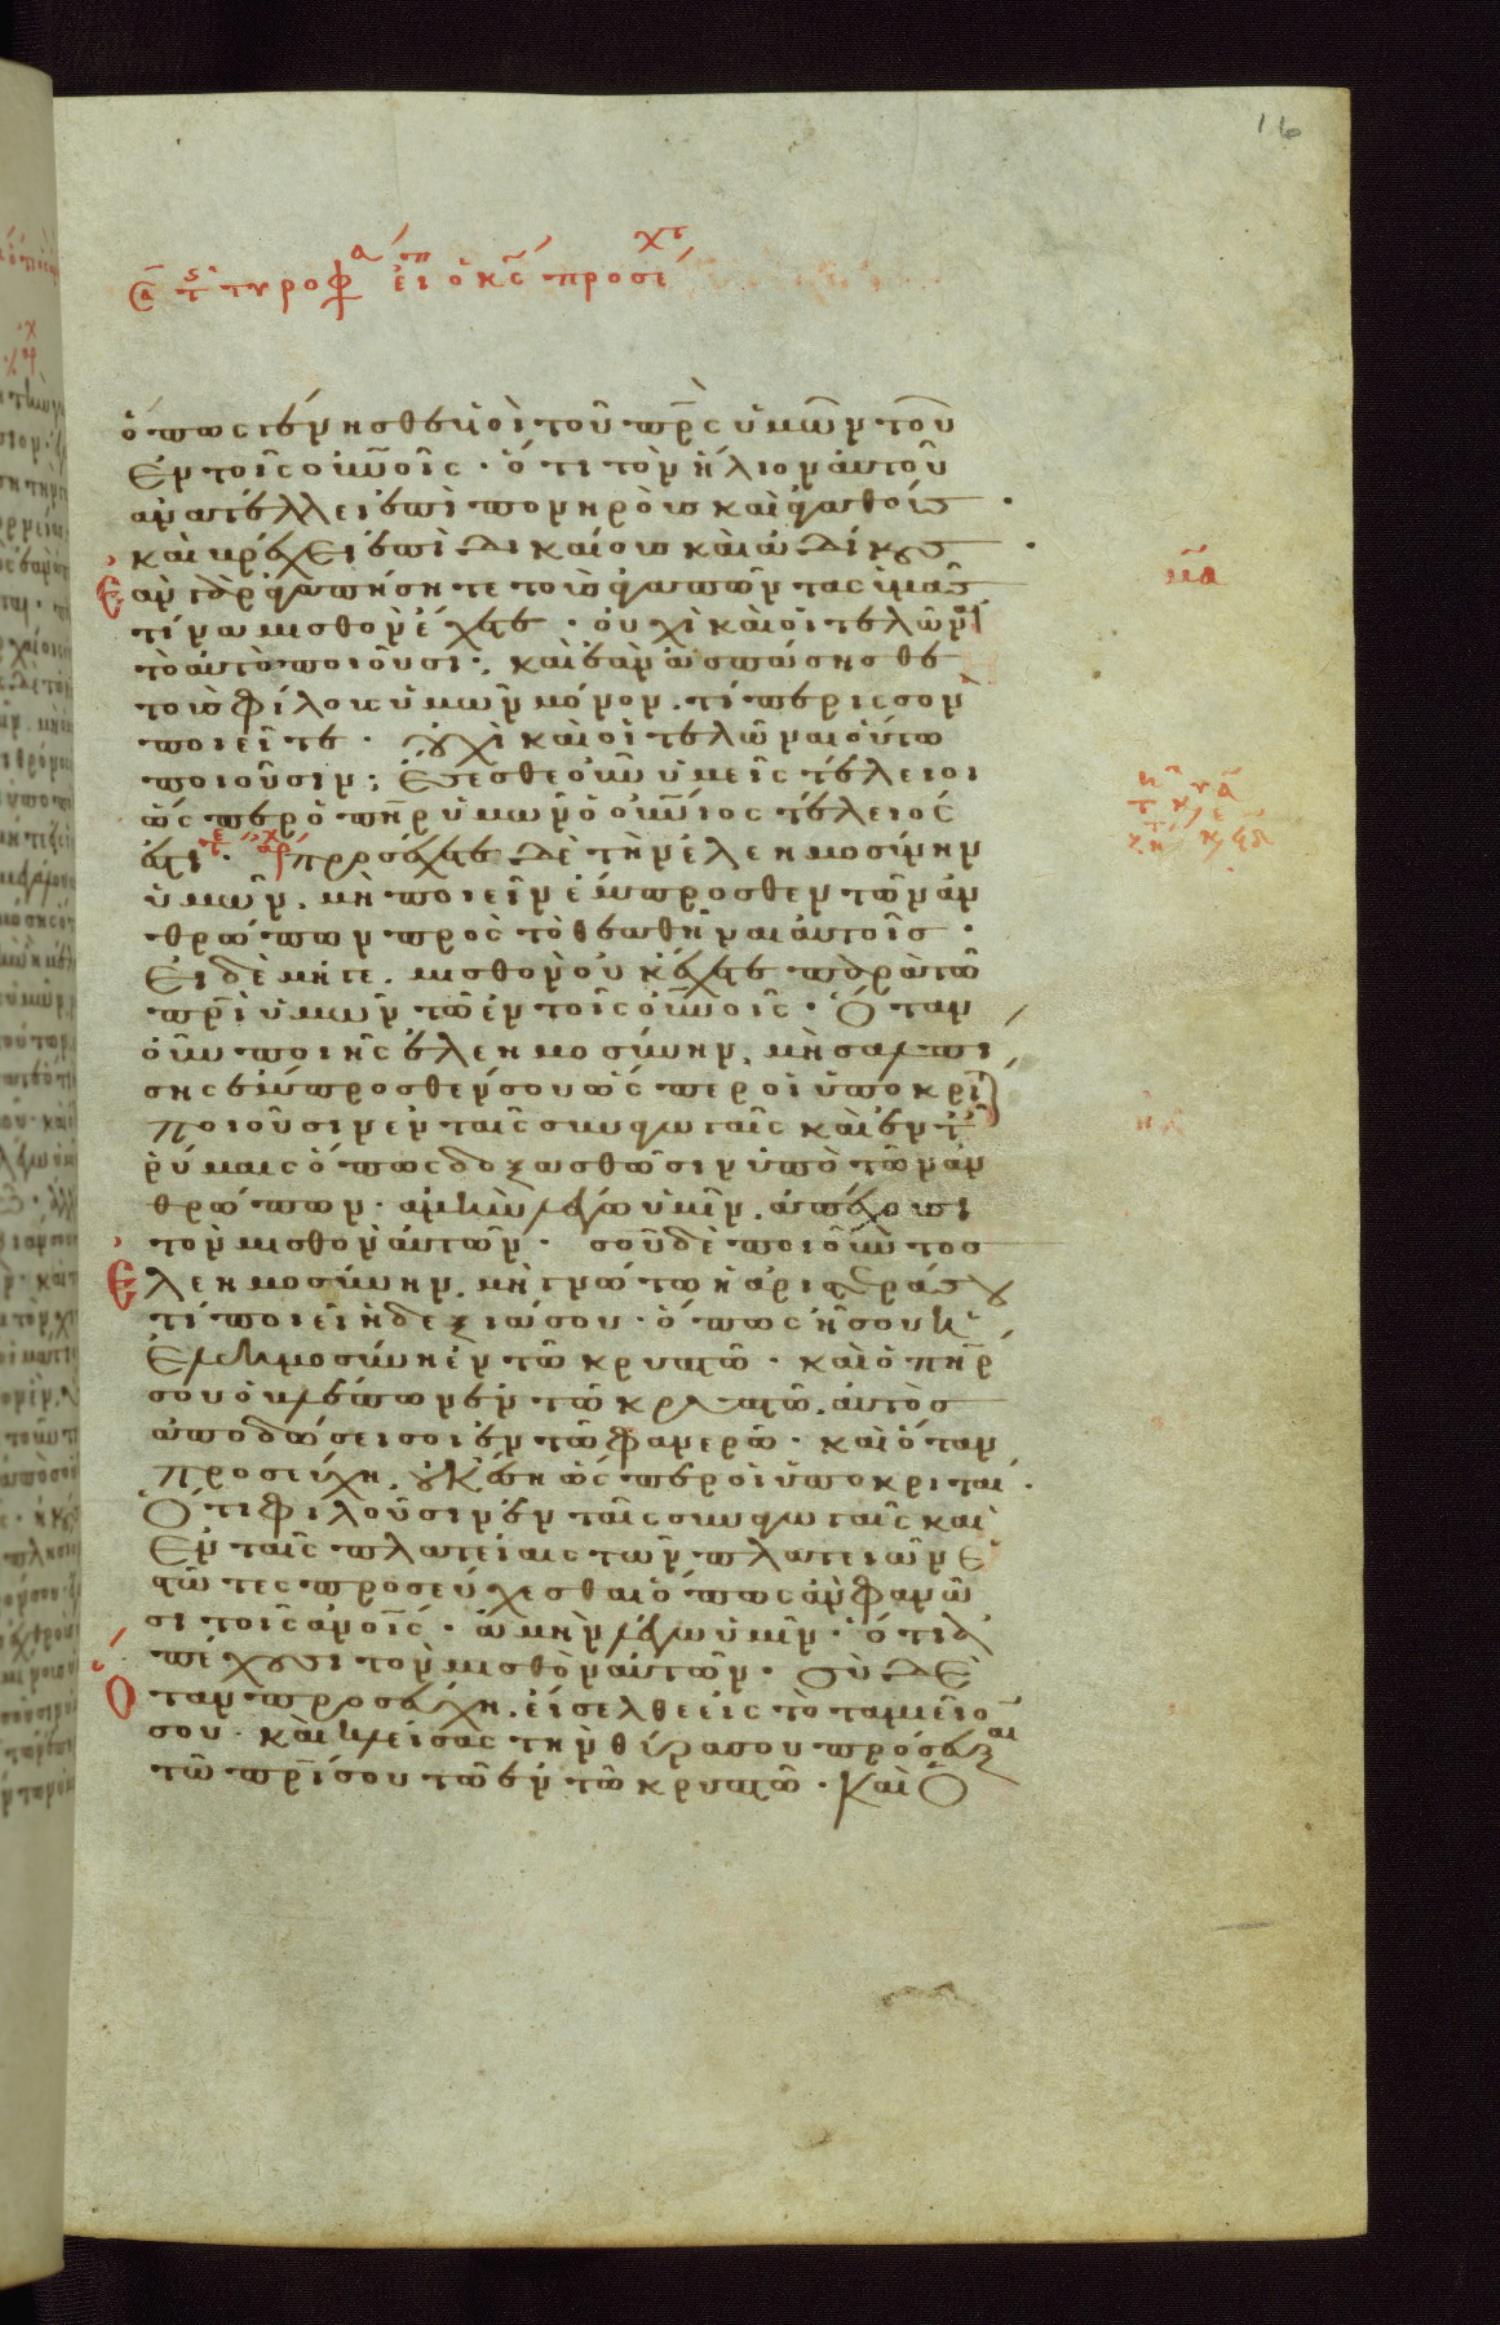 16
ὅπως γένησθε υἱοὶ τοῦ πρς ὑμῶν τοῦ
ἐν τοῖς οὐνοῖς · ὅτι τὸν ἥλιον αὐτοῦ
ἀνατέλλει ἐπὶ πονηροὺς καὶ ἀγαθοὺς ·
καὶ βρέχει ἐπὶ δικαίους καὶ ἀδίκους ·
Ἐὰν γὰρ ἀγαπήσητε τοὺς ἀγαπῶντας ὑμᾶς
τίνα μισθὸν ἔχετε · οὐχὶ καὶ οἱ τελῶναι
τὸ αὐτὸ ποιοῦσι · καὶ ἐὰν ἀσπάσησθε
τοὺς φίλους ὑμῶν μόνον · τί περισσὸν
ποιεῖτε · οὐχὶ καὶ οἱ τελῶναι οὕτω
ποιοῦσιν ; Ἔσεσθε οὖν ὑμεῖς τέλειοι
ὥσπερ ὁ πηρ ὑμῶν ὁ οὐνιος τέλειός
ἐστι · προσέχετε δὲ τὴν ἐλεημοσύνην
ὑμῶν · μὴ ποιεῖν ἔμπροσθεν τῶν ἀν
θρώπων πρὸς τὸ θεαθῆναι αὐτοῖς ·
Εἰ δὲ μήγε · μισθὸν οὐκ ἔχετε παρὰ τῶ
πρι ὑμῶν τῶ ἐν τοῖς οὐνοῖς · Ὅταν
οὖν ποιῆς ἐλεημοσύνην · μὴ σαλπί
σης ἔμπροσθέν σου ὥσπερ οἱ ὑποκρι
ποιοῦσιν ἐν ταῖς συναγωγαῖς καὶ ἐν τ
ῥύμαις ὅπως δοξασθῶσιν ὑπὸ τῶν ἀν
θρώπων · ἀμὴν λέγω ὑμῖν · ἀπέχουσι
τὸν μισθὸν αὐτῶν · σοῦ δὲ ποιοῦντος
Ἐλεημοσύνην · μὴ γνώτω ἡ ἀριστερά σου
τί ποιεῖ ἡ δεξιά σου · ὅπως ἦ σου ἡ
Ἐλεημοσύνη ἐν τῶ κρυπτῶ · καὶ ὁ πηρ
σου ὁ βλέπων ἐν τῶ κρυπτῶ · αὐτὸς
ἀποδώσει σοι ἐν τῶ φανερῶ · καὶ ὅταν
προσεύχη · οὐκ ἔση ὥσπερ οἱ ὑποκριταί ·
Ὅτι φιλοῦσιν ἐν ταῖς συναγωγαῖς καὶ
Ἐν ταῖς πλατείαις τῶν πλατειῶν ἑ
στῶτες προσεύχεσθαι ὅπως ἂν φανῶ
σι τοῖς ἀνοῖς · ἀμὴν λέγω ὑμῖν · ὅτι ἀ
πέχουσι τὸν μισθὸν αὐτῶν · σὺ δὲ
Ὅταν προσεύχη · εἴσελθε εἰς τὸ ταμιεῖο
σου · καὶ κλείσας τὴν θύρα σου πρόσευξαι
τῶ πρί σου τῶ ἐν τῶ κρυπτῶ · Καὶ ὁ